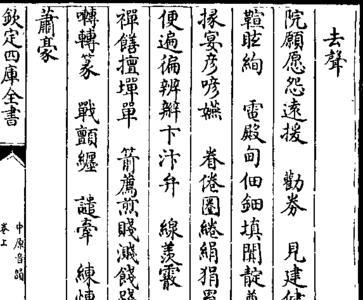 去聲
院願愿怨遠援 勸券 見建
鞙眩絢 電殿甸佃鈿填闐靛
掾宴彥喭嬿 眷倦圈綣絹狷罥
便遍徧辨辯卞汴弁 線羡霰
禪饍擅墠單 箭薦煎賤濺餞踐
囀轉篆 戰顫纏 譴牽 練
蕭豪
欽定四庫全書
中原音韻
卷上